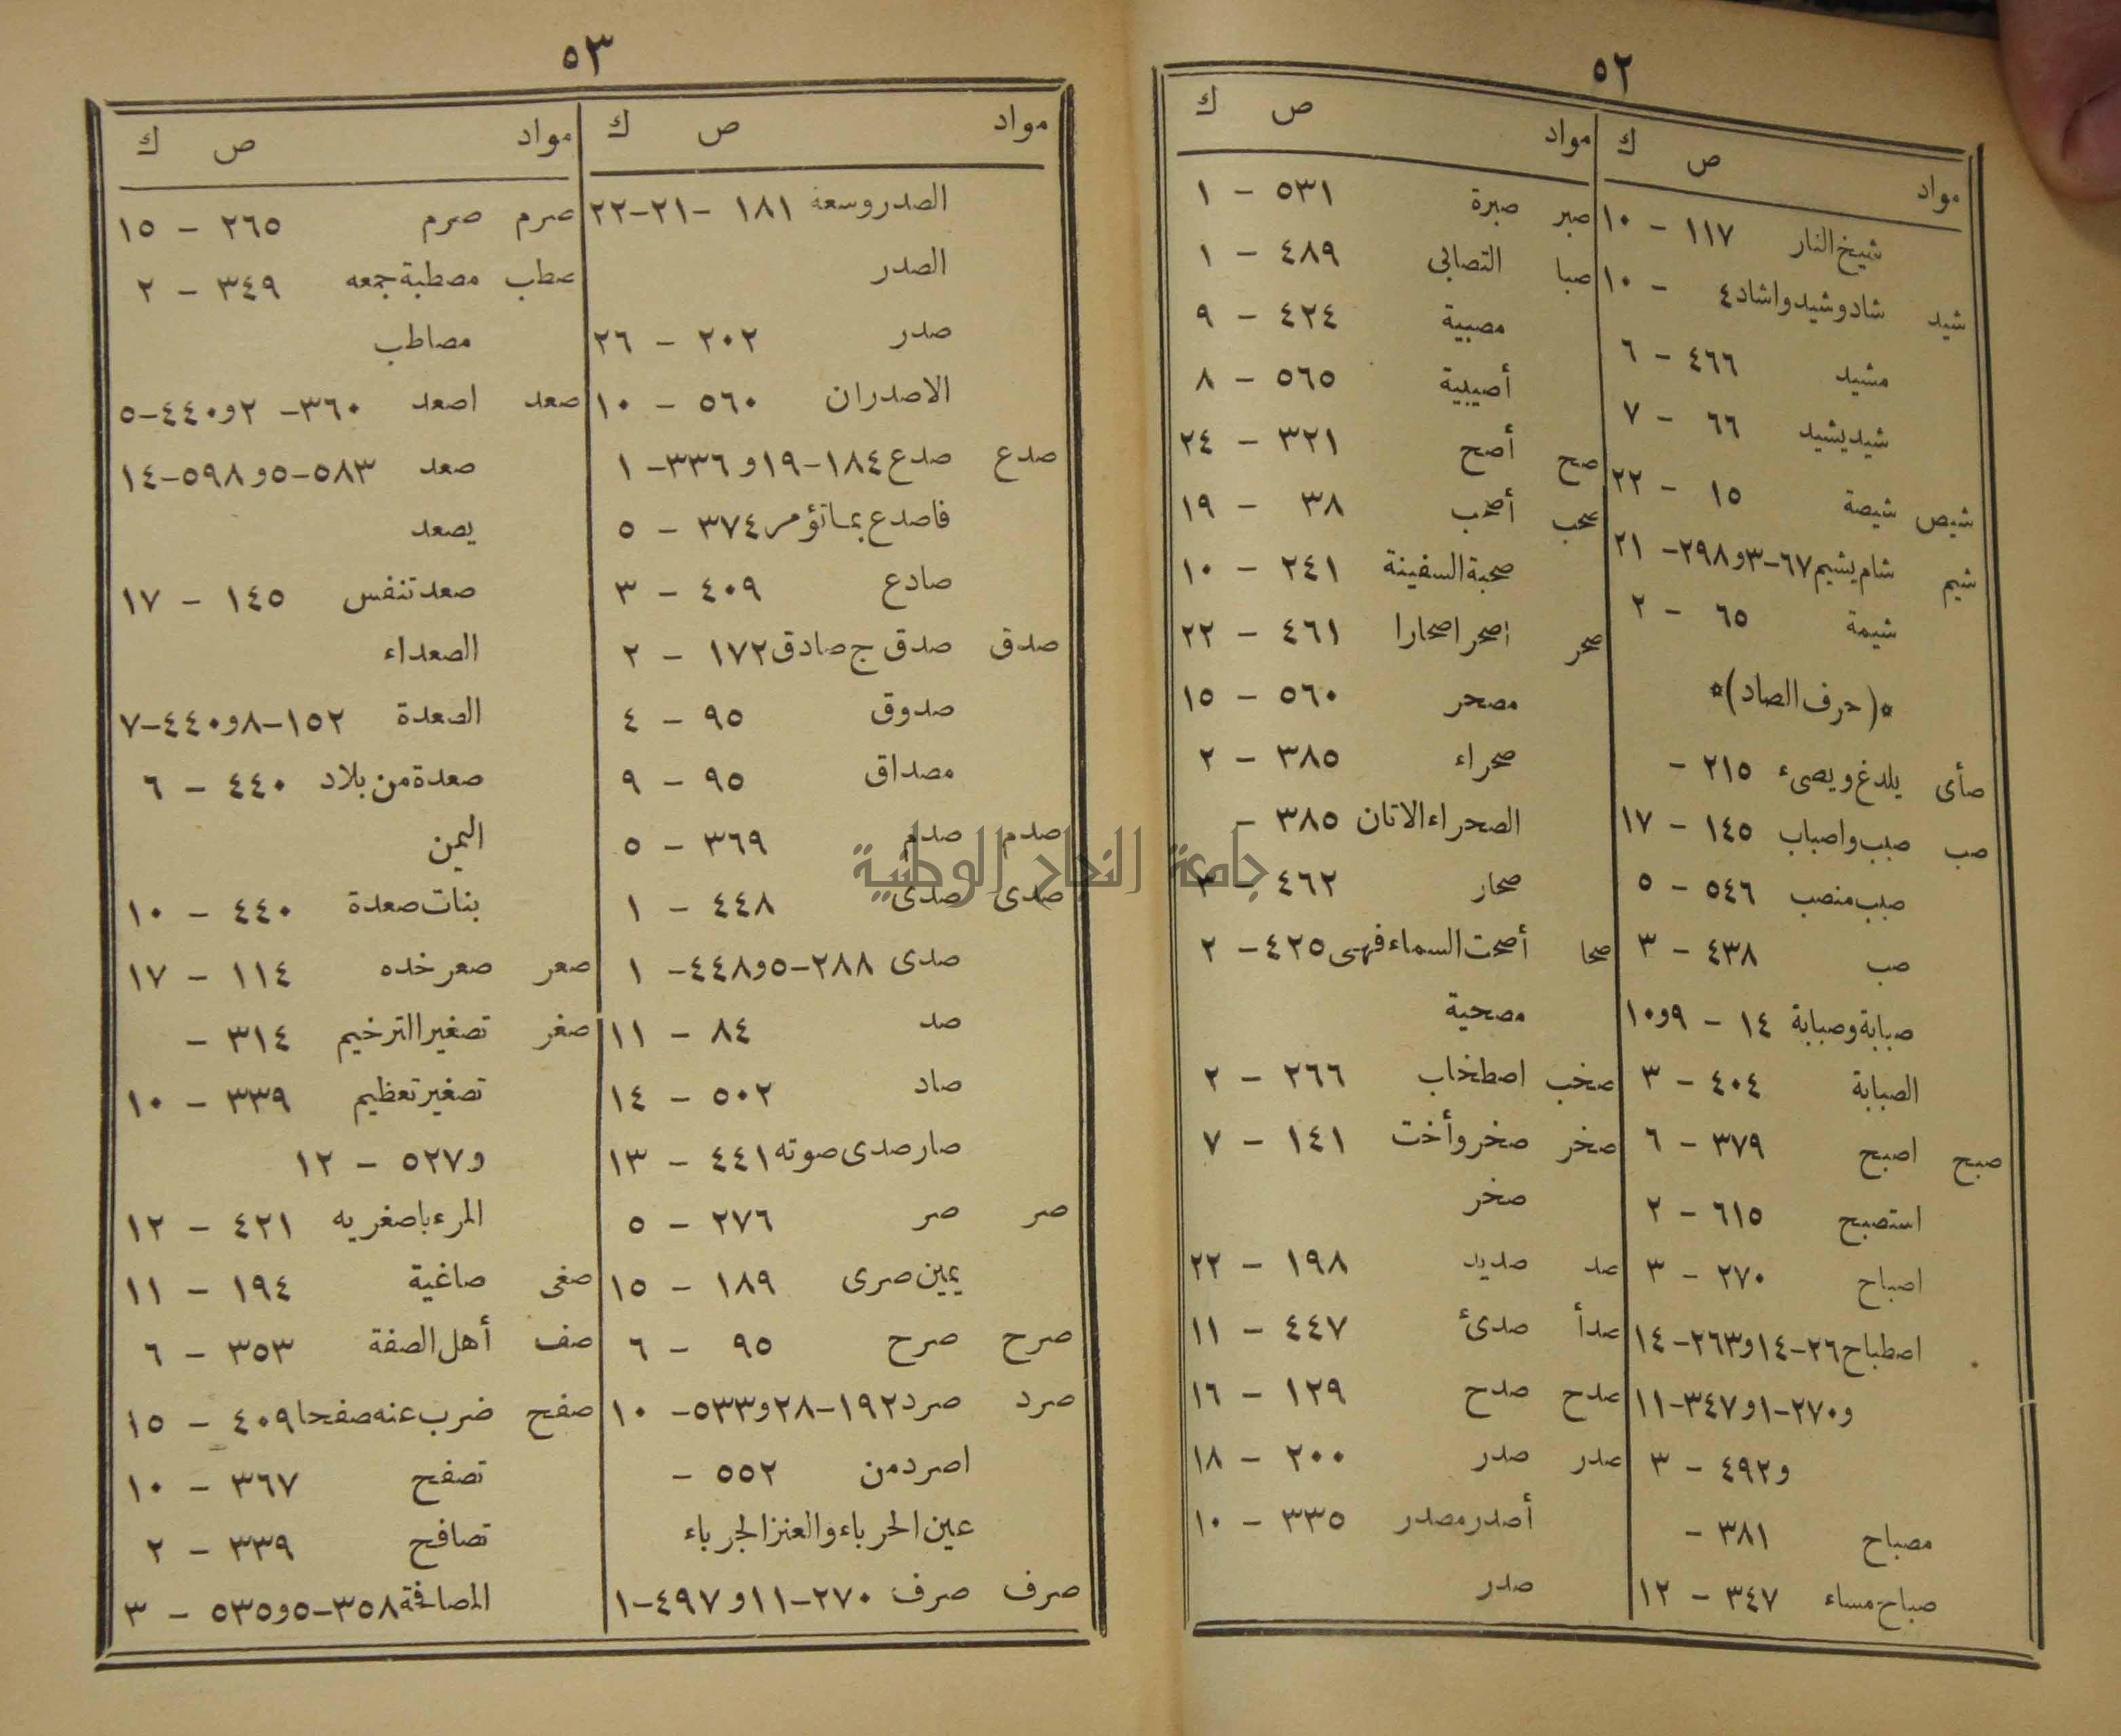 ٥٢
مواد ص ك
شيخ النار ١١٧ - ١٠
شيد شاد وشيد واشاد ٤ - ١٠
مشيد ٤٦٦ - ٦
شيد يشيد ٦٦ - ٧
شيص شيصة ١٥ - ٢٢
شيم شام يشيم ٦٧-٣ و ٢٩٨- ٢١
شيمة ٦٥ - ٢
*(حرف الصاد)*
صأى يلدغ ويصىء ٢١٥ -
صب صبب واصباب ١٤٥ - ١٧
صبب منصب ٥٤٦ - ٥
صب ٤٣٨ - ٣
صبابة وصبابة ١٤ - ٩ و ١٠
الصبابة ٤٠٤ - ٣
صبح اصبح ٣٧٩ - ٦
استصبح ٦١٥ - ٢
اصباح ٢٧٠ - ٣
اصطباح ٢٦-١٤ و ٢٦٣- ١٤
و ٢٧٠-١ و ٣٤٧-١١
و ٤٩٢ - ٣
مصباح ٣٨١ -
صباح مساء ٣٤٧ - ١٢
مواد ص ك
صبر صبرة ٥٣١ - ١
صبا التصابى ٤٨٩ - ١
مصبية ٤٢٤ - ٩
أصيبية ٥٦٥ - ٨
صح أصح ٣٢١ - ٢٤
صحب أصحب ٣٨ - ١٩
صحبة السفينة ٢٤١ - ١٠
صحر اصحر اصحارا ٤٦١ - ٢٢
مصحر ٥٦٠ - ١٥
صحراء ٣٨٥ - ٢
الصحراء الاتان ٣٨٥ -
صحار ٤٦٢ - ٣
صحا أصحت السماء فهى ٤٢٥ - ٢
مصحية
صخب اصطخاب ٢٦٦ - ٢
صخر صخر وأخت ١٤١ - ٧
صخر
صد صديد ١٩٨ - ٢٢
صدأ صدئ ٤٤٧ - ١١
صدح صدح ١٢٩ - ١٦
صدر صدر ٢٠٠ - ١٨
أصدر مصدر ٣٣٥ - ١٠
صدر
٥٣
مواد ص ك
الصدر وسعة ١٨١ -٢١-٢٢
الصدر
صدر ٢٠٢ - ٢٦
الاصدران ٥٦٠ - ١٠
صدع صدع ١٨٤-١٩ و ٣٣٦- ١
فاصدع بما تؤمر ٣٧٤ - ٥
صادع ٤٠٩ - ٣
صدق صدق ج صادق ١٧٢ - ٢
صدوق ٩٥ - ٤
مصداق ٩٥ - ٩
صدم صدم ٣٦٩ - ٥
صدى صدى ٤٤٨ - ١
صدى ٢٨٨-٥ و ٤٤٨- ١
صد ٨٤ - ١١
صاد ٥٠٢ - ١٤
صار صدى صوته ٤٤١ - ١٣
صر صر ٢٧٦ - ٥
يمين صرى ١٨٩ - ١٥
صرح صرح ٩٥ - ٦
صرد صرد ١٩٢-٢٨ و ٥٣٣- ١٠
اصرد من ٥٥٢ -
عين الحرباء والعنز الجرباء
صرف صرف ٢٧٠-١١ و ٤٩٧-١
مواد ص ك
صرم صرم ٢٦٥ - ١٥
صطب مصطبة جمعه ٣٤٩ - ٢
مصاطب
صعد اصعد ٣٦٠- ٢ و ٤٤٠-٥
صعد ٥٨٣-٥ و ٥٩٨-١٤
يصعد
صعد تنفس ١٤٥ - ١٧
الصعداء
الصعدة ١٥٢-٨ و ٤٤٠-٧
صعدة من بلاد ٤٤٠ - ٦
اليمن
بنات صعدة ٤٤٠ - ١٠
صعر صعر خده ١١٤ - ١٧
صغر تصغير الترخيم ٣١٤ -
تصغير تعظيم ٣٣٩ - ١٠
و ٥٢٧ - ١٢
المرء باصغريه ٤٢١ - ١٢
صغى صاغية ١٩٤ - ١١
صف أهل الصفة ٣٥٣ - ٦
صفح ضرب عنه صفحا ٤٠٩ - ١٥
تصفح ٣٦٧ - ١٠
تصافح ٣٣٩ - ٢
المصافحة ٣٥٨-٥ و ٥٣٥ - ٣
جامعة النجاح الوطنية